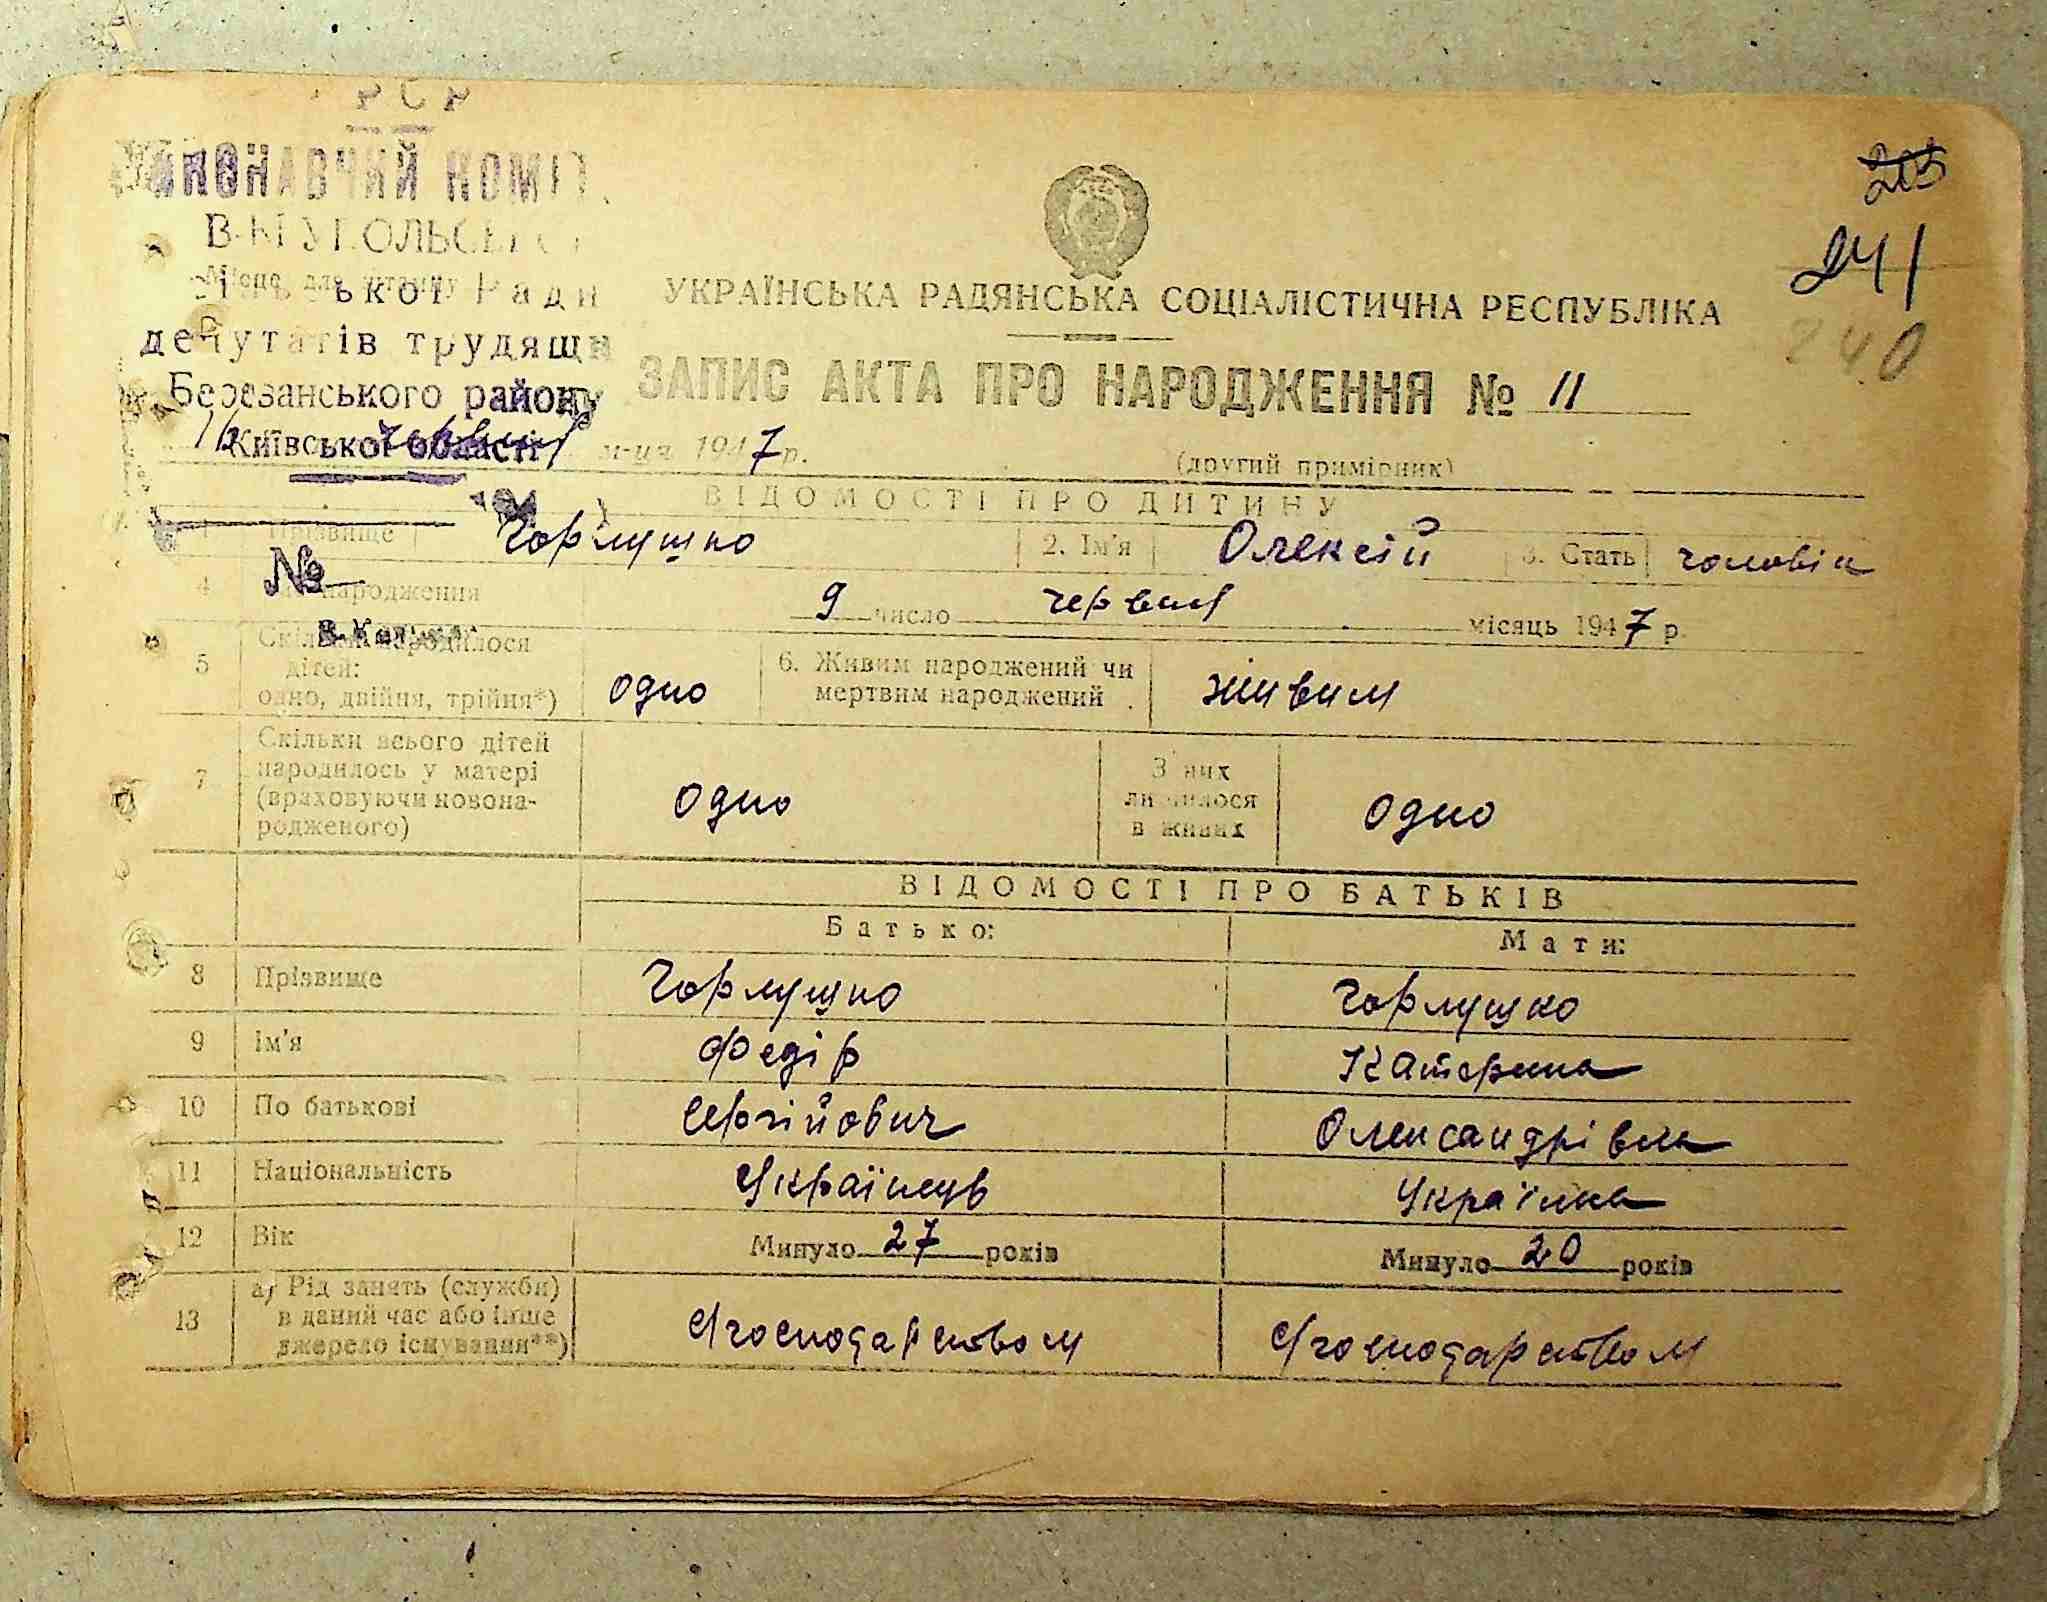 РСР
ВИКОНАВЧИЙ КОМІТ
Місце для штампу
сільської Ради
депутатів трудящи
Березанського району
Київської області
203
241
240
УКРАЇНСЬКА РАДЯНСЬКА СОЦІАЛІСТИЧНА РЕСПУБЛІКА
ЗАПИС АКТА ПРО НАРОДЖЕННЯ № 11
червня м-ця 1947 р.
(другий примірник)
194
ВІДОМОСТІ ПРО ДИТИНУ
1 Прізвище Чорлушко 2. Ім'я Олексій 3. Стать чоловік
№
4 народження 9 число червня місяць 1947 р.
5 Скільки народилося
дітей:
одно, двійня, трійня*) одно 6. Живим народжений чи
мертвим народжений живим
7 Скільки всього дітей
народилось у матері
(враховуючи новона-
родженого) одно З них
лишилося
в живих одно
ВІДОМОСТІ ПРО БАТЬКІВ
Батько: Мати:
8 Прізвище Чорлушко Чорлушко
9 Ім'я Федір Катерина
10 По батькові Сергійович Олександрівна
11 Національність Українець Українка
12 Вік Минуло 27 років Минуло 20 років
13 а) Рід занять (служби)
в даний час або інше
джерело існування**) С/господарством С/господарством